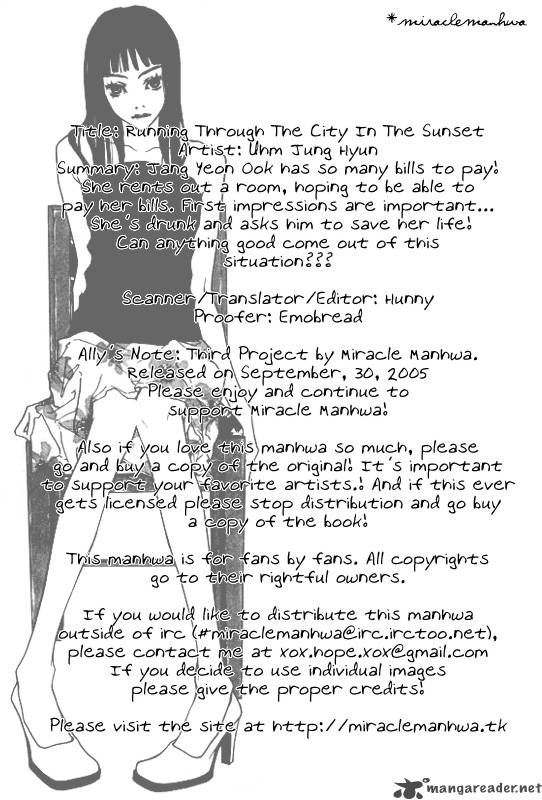 *miraclemanhwa
Title: Running Through The City In The Sunset
Artist: Uhm Jung Hyun
Summary: Jang Yeon Ook has so many bills to pay!
She rents out a room, hoping to be able to
pay her bills. First impressions are important...
She's drunk and asks him to save her life!
Can anything good come out of this
situation???
Scanner/Translator/Editor: Hunny
Proofer: Emobread
Ally's Note: Third Project by Miracle Manhwa.
Released on September, 30, 2005
Please enjoy and continue to
support Miracle Manhwa!
Also if you love this manhwa so much, please
go and buy a copy of the original! It's important
to support your favorite artists.! And if this ever
gets licensed please stop distribution and go buy
a copy of the book!
This manhwa is for fans by fans. All copyrights
go to their rightful owners.
If you would like to distribute this manhwa
outside of irc (#miraclemanhwa@irc.irctoo.net),
please contact me at xox.hope.xox@gmail.com
If you decide to use individual images
please give the proper credits!
Please visit the site at http://miraclemanhwa.tk
mangareader.net